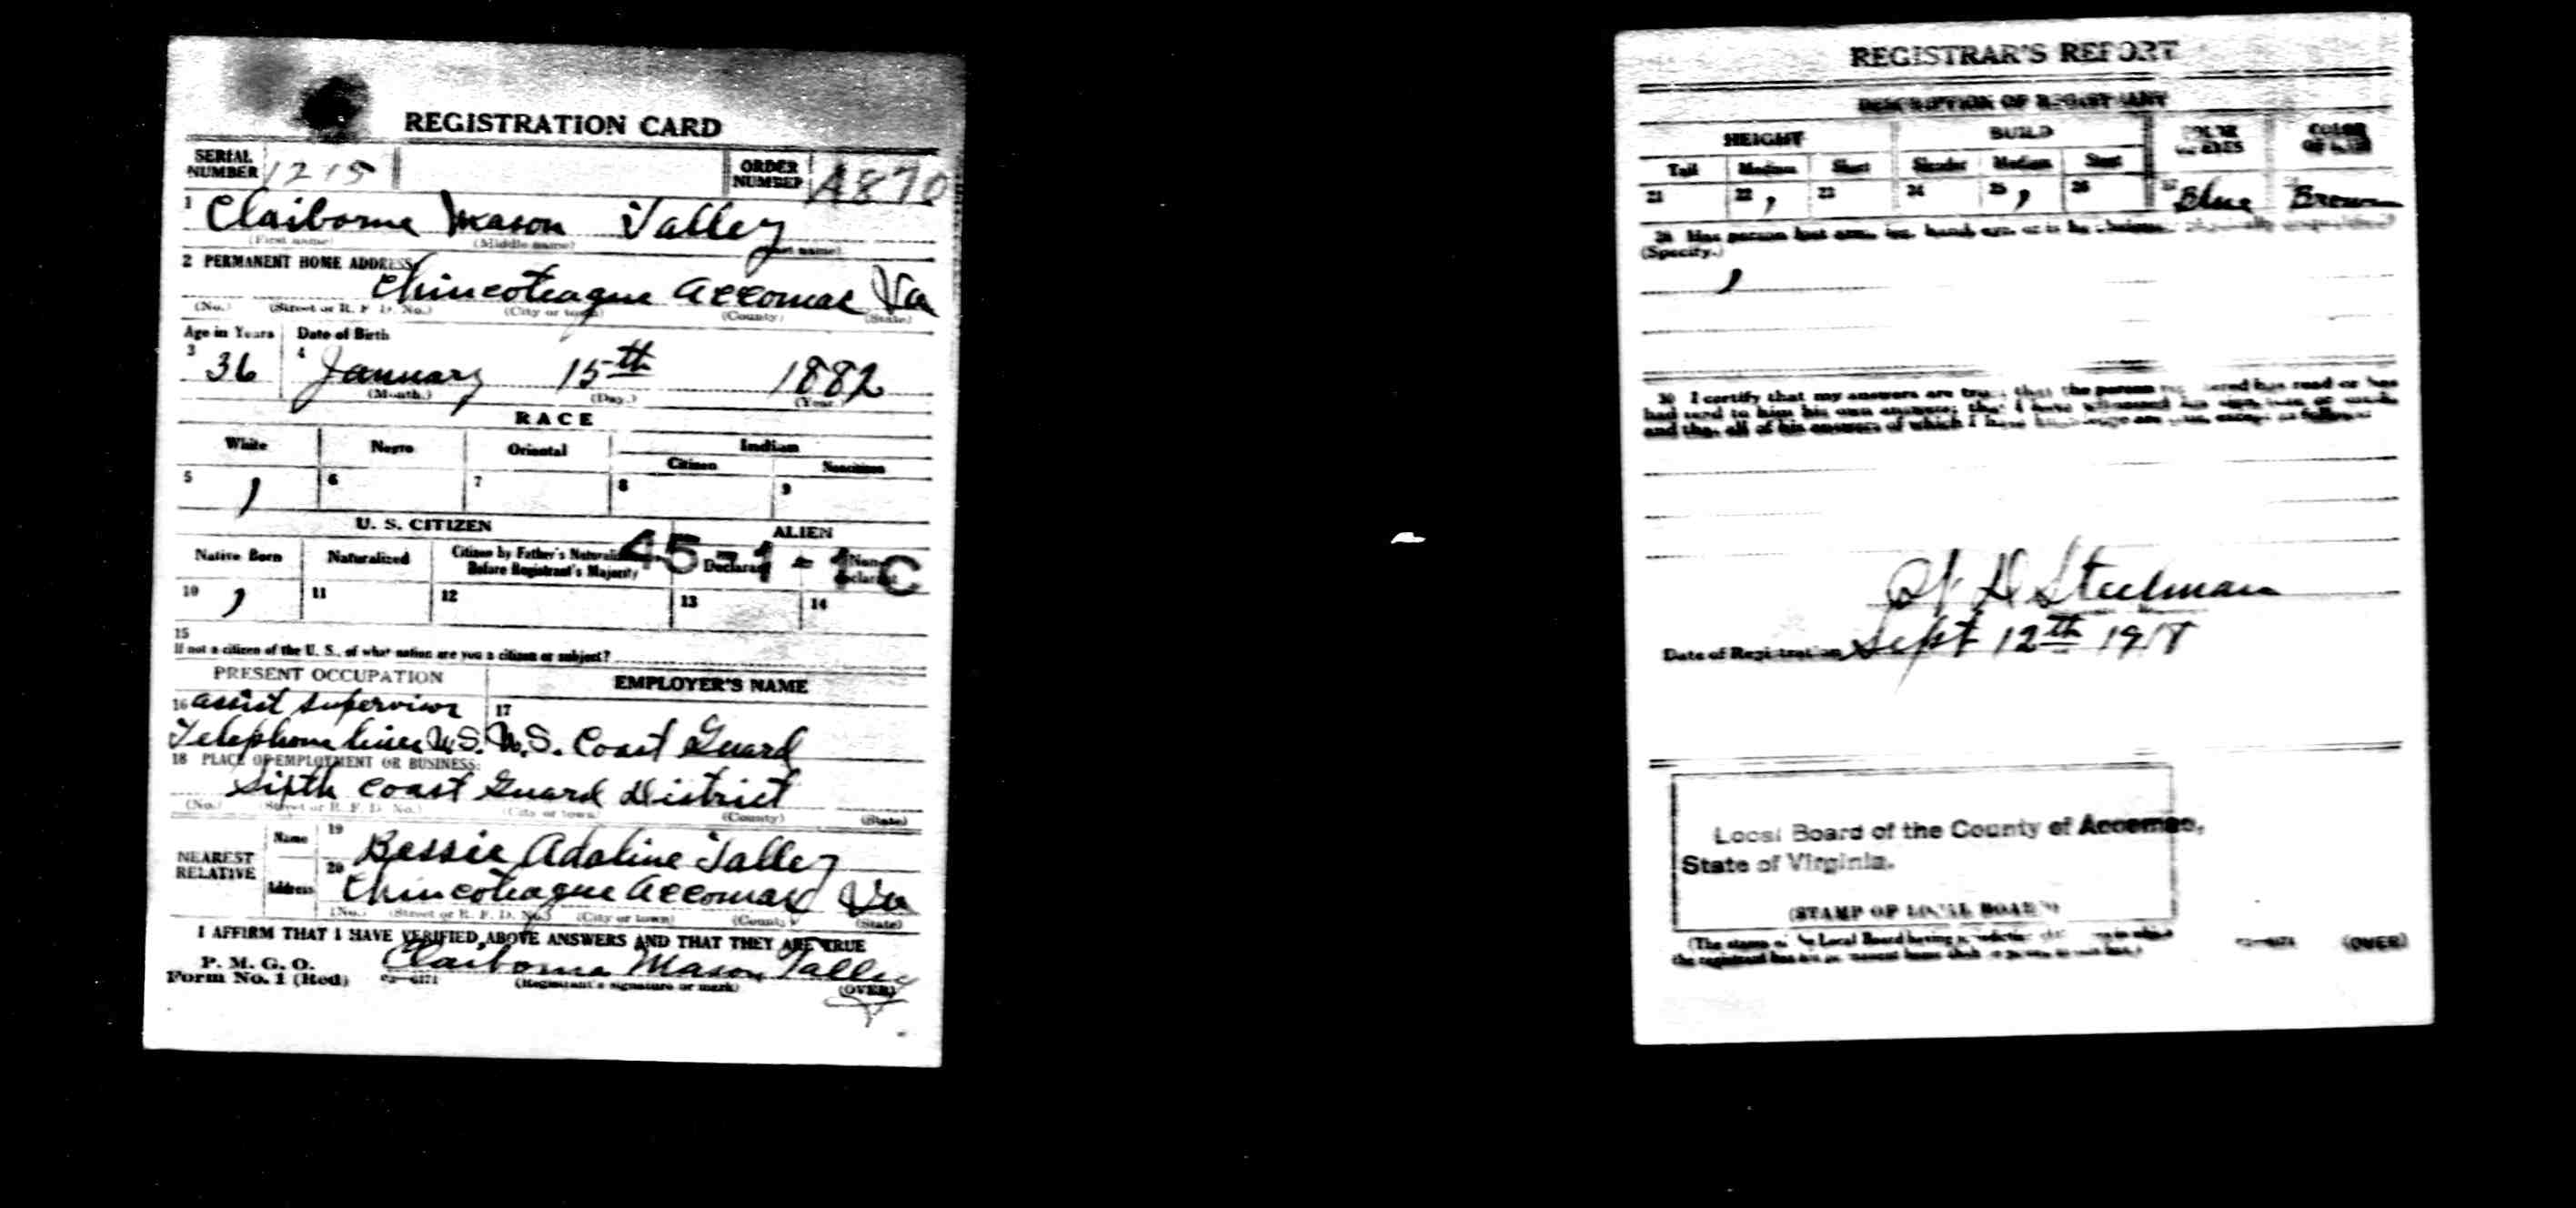 REGISTRATION CARD
SERIAL NUMBER 1215 ORDER NUMBER A870
1 Claiborne Mason Talley
(First name) (Middle name) (Last name)
2 PERMANENT HOME ADDRESS
Chincoteague Accomac Va
(No.) (Street or R. F. D. No.) (City or town) (County) (State)
Age in Years Date of Birth
3 36 4 January 15th 1882
(Month.) (Day.) (Year.)
RACE
White Negro Oriental Indian
Citizen Noncitizen
5 6 7 8 9
U. S. CITIZEN ALIEN
Native Born Naturalized Citizen by Father's Before Registrant's Majority
45-1-1 C
10 11 12 13 14
15
If not a citizen of the U. S., of what nation are you a citizen or subject?
PRESENT OCCUPATION EMPLOYER'S NAME
16 assist supervisor 17
Telephone lines U.S. U.S. Coast Guard
18 PLACE OF EMPLOYMENT OR BUSINESS:
Sixth Coast Guard District
(No.) (Street or R. F. D. No.) (City or town) (County) (State)
NEAREST RELATIVE
Name 19 Bessie Adaline Talley
Address 20 Chincoteague Accomac Va
(No.) (Street or R. F. D. No.) (City or town) (County) (State)
I AFFIRM THAT I HAVE VERIFIED ABOVE ANSWERS AND THAT THEY ARE TRUE
P. M. G. O.
Form No. 1 (Red) Claiborne Mason Talley
(Registrant's signature or mark) (OVER)
REGISTRAR'S REPORT
DESCRIPTION OF REGISTRANT
HEIGHT BUILD COLOR OF EYES COLOR OF HAIR
Tall Medium Short Slender Medium Stout
21 22 23 24 25 26 Blue Brown
Has person lost arm, leg, hand, eye, or is he
(Specify.)
30 I certify that my answers are that the person has read or has
had read to him his own answers; that I have witnessed his
and that all of his answers of which I have
Steelman
Date of Registration Sept 12th 1918
Local Board of the County of Accomac,
State of Virginia.
(STAMP OF LOCAL BOARD)
(The stamp of the Local Board having
the registrant has his permanent home shall
(OVER)